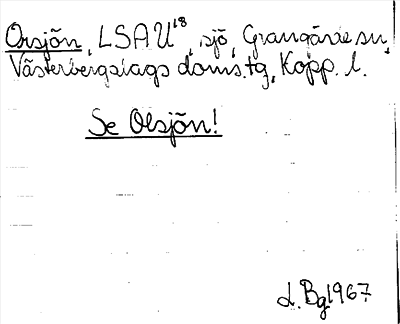 Orsjön, LSAU¹⁸, sjö, Grangärde sn,
Västerbergslags doms.tg, Kopp. l.
Se Olsjön!
d. Bg 1967